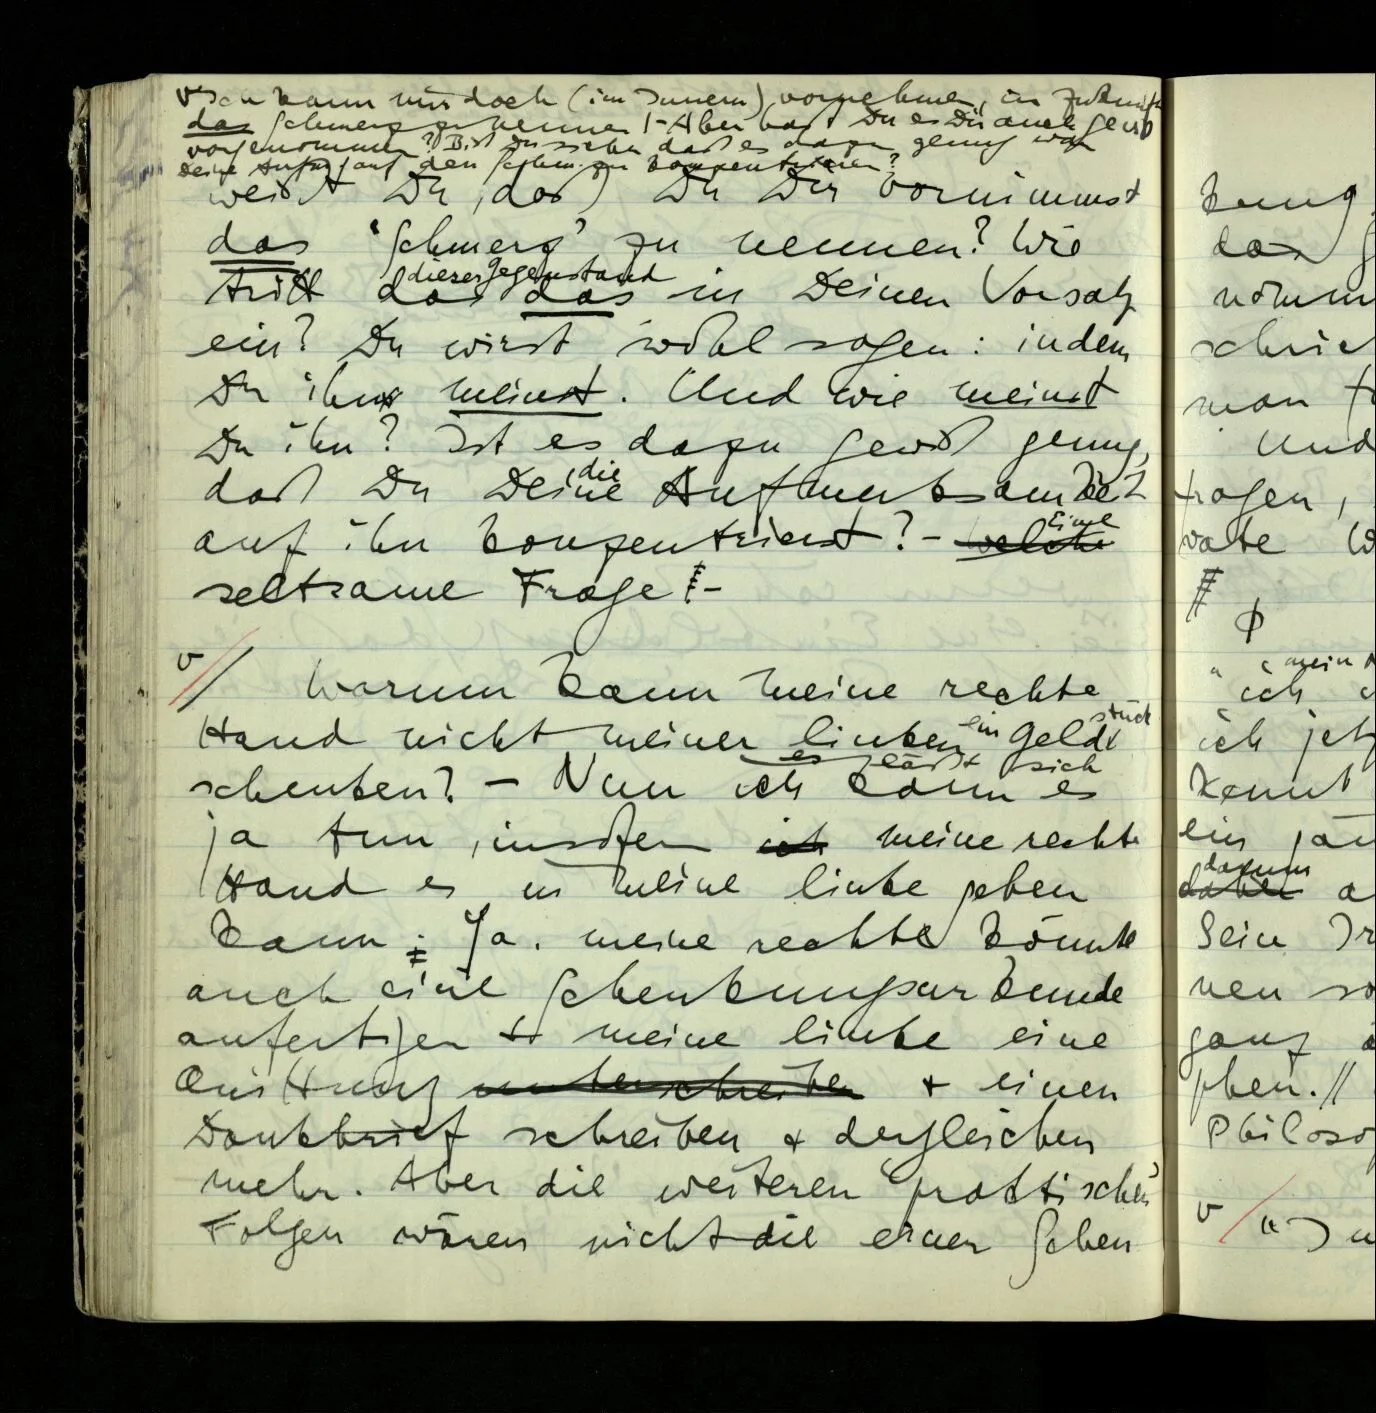 Ich kann mir doch (im Innern) vornehmen, in Zukunft
das Schmerz zu nennen! – Aber hast Du es Dir auch gewiß
vorgenommen? Bist Du sicher daß es dazu genug war
Deine Aufm. auf den Schm. zu konzentrieren?
weißt Du, daß Du Dir vornimmst
das ‘Schmerz’ zu nennen? Wie
dieser Gegenstand
tritt das das in Deinen Vorsatz
ein? Du wirst wohl sagen: indem
Du ihn meinst. Und wie meinst
Du ihn? Ist es dazu gewiß genug,
die
daß Du Deine Aufmerksamkeit
Eine
auf ihn konzentrierst? – welche
seltsame Frage! –
v // Warum kann meine rechte
ein stück
Hand nicht meiner linken Geld
es läßt sich
schenken? – Nun ich kann es
ja tun, insofern ich meine rechte
Hand es in meine linke geben
kann: Ja, meine rechte könnte
auch eine Schenkungsurkunde
anfertigen & meine linke eine
Quittung unterschreiben & einen
Dankbrief schreiben & dergleichen
mehr. Aber die weiteren praktischen
Folgen wären nicht die einer Schen
kung
das
schrie
man
Und
fragen,
vate W
φ
mein
ich
ich jetz
kennt
ein
darum
daher a
Sein Ir
nen so
ganz
phen. //
Philoso
v / “